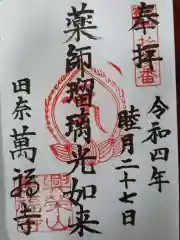 奉拝
令和四年
睦月二十七日
薬師瑠璃光如来
田奈
萬福寺